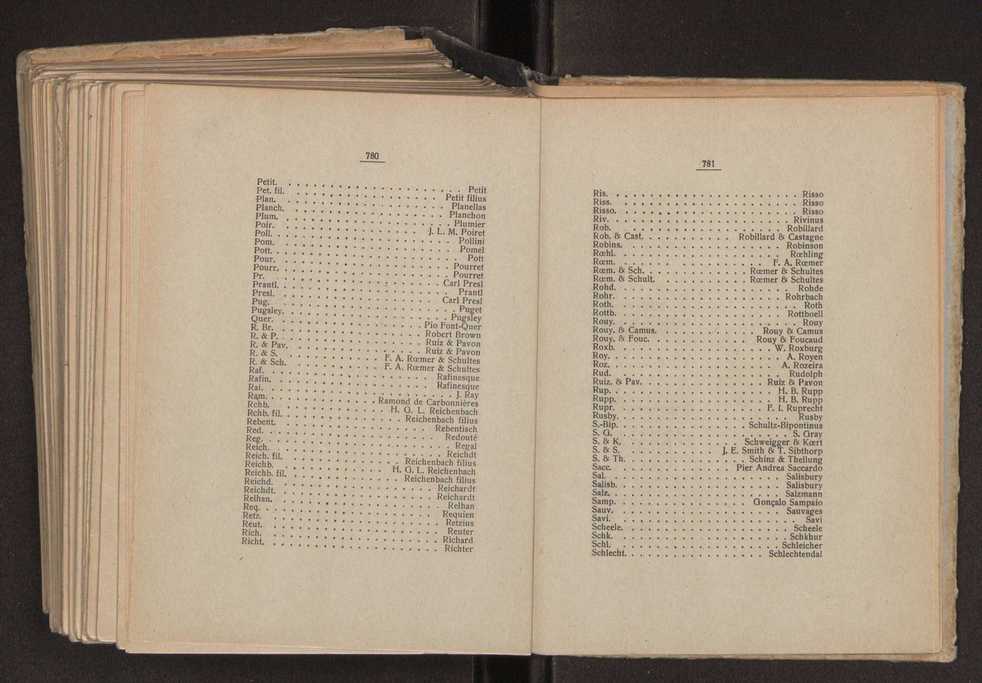 780
Petit. . . . . . . . . . . . Petit
Pet. fil. . . . . . . . . . . . Petit filius
Plan. . . . . . . . . . . . Planellas
Planch. . . . . . . . . . . . Planchon
Plum. . . . . . . . . . . . Plumier
Poir. . . . . . . . . . . . J. L. M. Poiret
Poll. . . . . . . . . . . . Pollini
Pom. . . . . . . . . . . . Pomel
Pott. . . . . . . . . . . . Pott
Pour. . . . . . . . . . . . Pourret
Pourr. . . . . . . . . . . . Pourret
Pr. . . . . . . . . . . . Carl Presl
Prantl. . . . . . . . . . . . Prantl
Presl. . . . . . . . . . . . Carl Presl
Pug. . . . . . . . . . . . Puget
Pugsley. . . . . . . . . . . . Pugsley
Quer. . . . . . . . . . . . Pio Font-Quer
R. Br. . . . . . . . . . . . Robert Brown
R. & P. . . . . . . . . . . . Ruiz & Pavon
R. & Pav. . . . . . . . . . . . Ruiz & Pavon
R. & S. . . . . . . . . . . . F. A. Rœmer & Schultes
R. & Sch. . . . . . . . . . . . F. A. Rœmer & Schultes
Raf. . . . . . . . . . . . Rafinesque
Rafin. . . . . . . . . . . . Rafinesque
Rai. . . . . . . . . . . . J. Ray
Ram. . . . . . . . . . . . Ramond de Carbonnières
Rchb. . . . . . . . . . . . H. G. L. Reichenbach
Rchb. fil. . . . . . . . . . . . Reichenbach filius
Rebent. . . . . . . . . . . . Rebentisch
Red. . . . . . . . . . . . Redouté
Reg. . . . . . . . . . . . Regal
Reich. . . . . . . . . . . . Reichdt
Reich. fil. . . . . . . . . . . . Reichenbach filius
Reichb. . . . . . . . . . . . H. G. L. Reichenbach
Reichb. fil. . . . . . . . . . . . Reichenbach filius
Reichd. . . . . . . . . . . . Reichardt
Reichdt. . . . . . . . . . . . Reichardt
Relhan. . . . . . . . . . . . Relhan
Req. . . . . . . . . . . . Requien
Retz. . . . . . . . . . . . Retzius
Reut. . . . . . . . . . . . Reuter
Rich. . . . . . . . . . . . Richard
Richt. . . . . . . . . . . . Richter
781
Ris. . . . . . . . . . . . Risso
Riss. . . . . . . . . . . . Risso
Risso. . . . . . . . . . . . Risso
Riv. . . . . . . . . . . . Rivinus
Rob. . . . . . . . . . . . Robillard
Rob. & Cast. . . . . . . . . . . . Robillard & Castagne
Robins. . . . . . . . . . . . Robinson
Rœhl. . . . . . . . . . . . Rœhling
Rœm. . . . . . . . . . . . F. A. Rœmer
Rœm. & Sch. . . . . . . . . . . . Rœmer & Schultes
Rœm. & Schult. . . . . . . . . . . . Rœmer & Schultes
Rohd. . . . . . . . . . . . Rohde
Rohr. . . . . . . . . . . . Rohrbach
Roth. . . . . . . . . . . . Roth
Rottb. . . . . . . . . . . . Rottboell
Rouy. . . . . . . . . . . . Rouy
Rouy. & Camus. . . . . . . . . . . . Rouy & Camus
Rouy. & Fouc. . . . . . . . . . . . Rouy & Foucaud
Roxb. . . . . . . . . . . . W. Roxburg
Roy. . . . . . . . . . . . A. Royen
Roz. . . . . . . . . . . . A. Rozeira
Rud. . . . . . . . . . . . Rudolph
Ruiz. & Pav. . . . . . . . . . . . Ruiz & Pavon
Rup. . . . . . . . . . . . H. B. Rupp
Rupp. . . . . . . . . . . . H. B. Rupp
Rupr. . . . . . . . . . . . F. I. Ruprecht
Rusby. . . . . . . . . . . . Rusby
S.-Bip. . . . . . . . . . . . Schultz-Bipontinus
S. G. . . . . . . . . . . . S. Gray
S. & K. . . . . . . . . . . . Schweigger & Kœrt
S. & S. . . . . . . . . . . . J. E. Smith & T. Sibthorp
S. & Th. . . . . . . . . . . . Schinz & Thellung
Sacc. . . . . . . . . . . . Pier Andrea Saccardo
Sal. . . . . . . . . . . . Salisbury
Salisb. . . . . . . . . . . . Salisbury
Salz. . . . . . . . . . . . Salzmann
Samp. . . . . . . . . . . . Gonçalo Sampaio
Sauv. . . . . . . . . . . . Sauvages
Savi. . . . . . . . . . . . Savi
Scheele. . . . . . . . . . . . Scheele
Schk. . . . . . . . . . . . Schkhur
Schl. . . . . . . . . . . . Schleicher
Schlecht. . . . . . . . . . . . Schlechtendal